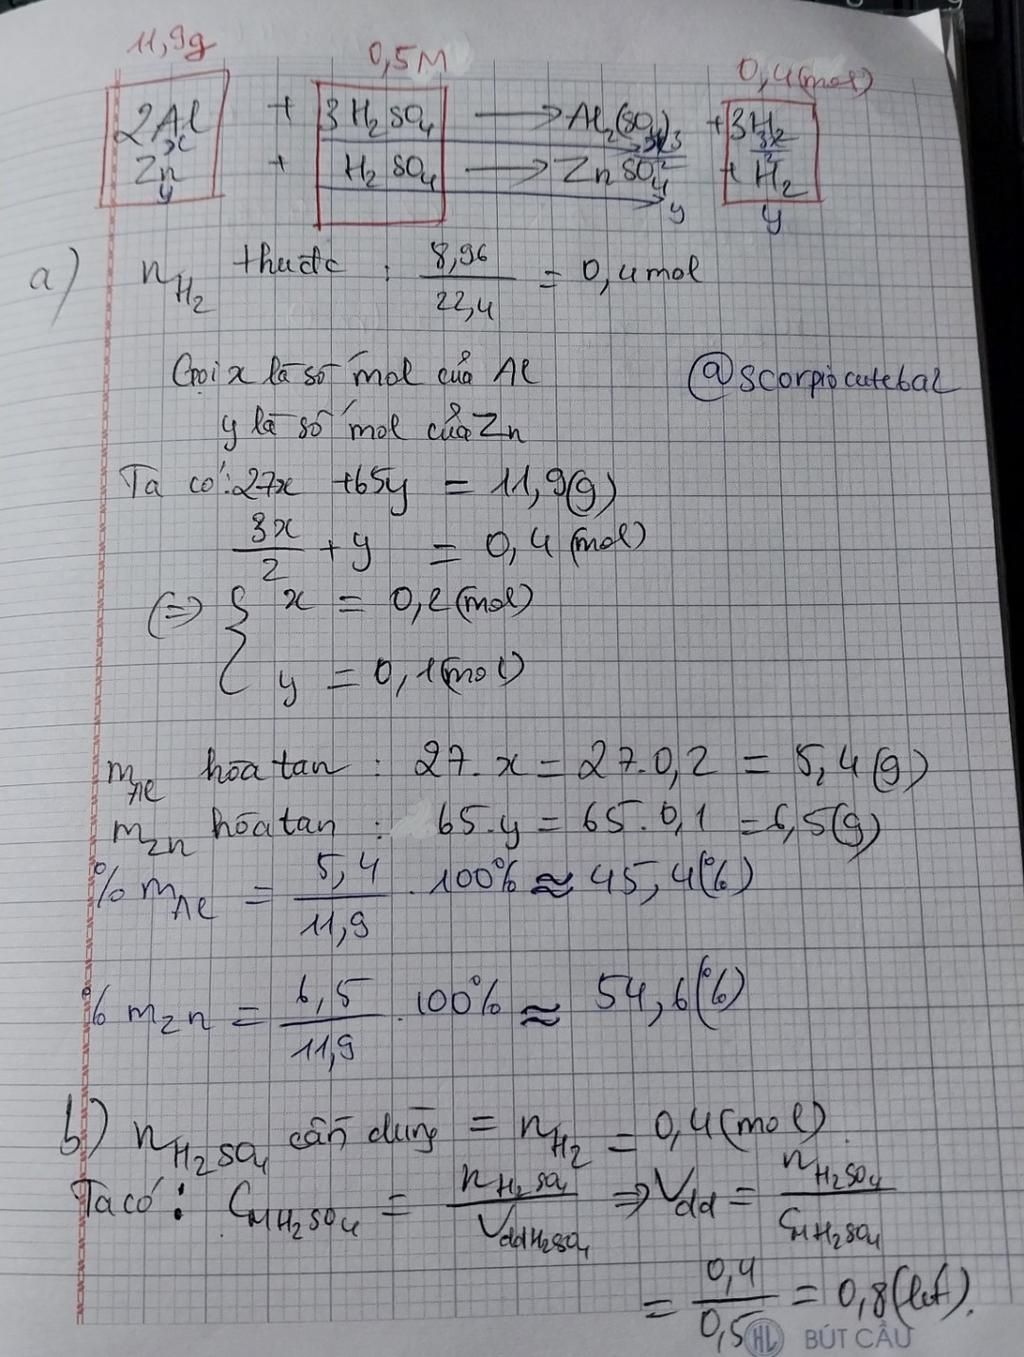 11,9g 0,5M 0,4(mol)
2Al + 3H₂SO₄ → Al₂(SO₄)₃ + 3H₂
x 3x/2
Zn + H₂SO₄ → ZnSO₄ + H₂
y y y
a) n_H₂ thuđc : 8,96/22,4 = 0,4mol
Gọi x là số mol của Al @scorpiocutebal
y là số mol của Zn
Ta có: 27x + 65y = 11,9(g)
3x/2 + y = 0,4 (mol)
(=> { x = 0,2(mol)
y = 0,1(mol)
m_Al hòa tan : 27.x = 27.0,2 = 5,4(g)
m_Zn hòa tan : 65.y = 65.0,1 = 6,5(g)
% m_Al = 5,4/11,9 . 100% ≈ 45,4(%)
% m_Zn = 6,5/11,9 . 100% ≈ 54,6(%)
b) n_H₂SO₄ cần dùng = n_H₂ = 0,4(mol).
Ta có : C_M H₂SO₄ = n_H₂SO₄/V_dd H₂SO₄ => V_dd = n_H₂SO₄/C_M H₂SO₄
= 0,4/0,5 = 0,8(lít).
HL BÚT CẦU